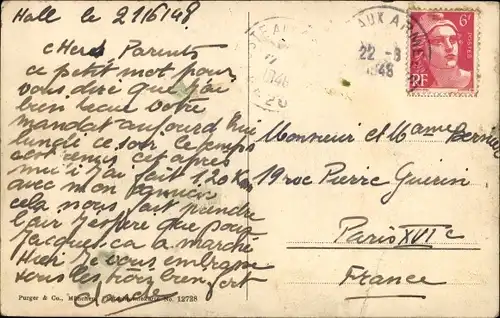 Hall le 21/6/48
cHers Parents
ce petit mot pour
vous dire que j'ai
bien recue votre
mandat aujourd hui
lundi ce soir le temps
est remis cet après
mui j'ai fait 120 Km
avec mon
cela nous fait prendre
l'air j'espère que pour
Jacques ca a marché
Hier Je vous embrasse
tous les trois bien fort
Claude
Purger & Co., München, No. 12728
AUX ARMEES
22 - 6
1948
6F
POSTES
RF
1948
Monsieur et Mame Bernier
19 roc Pierre Guerin
Paris XVI e
France